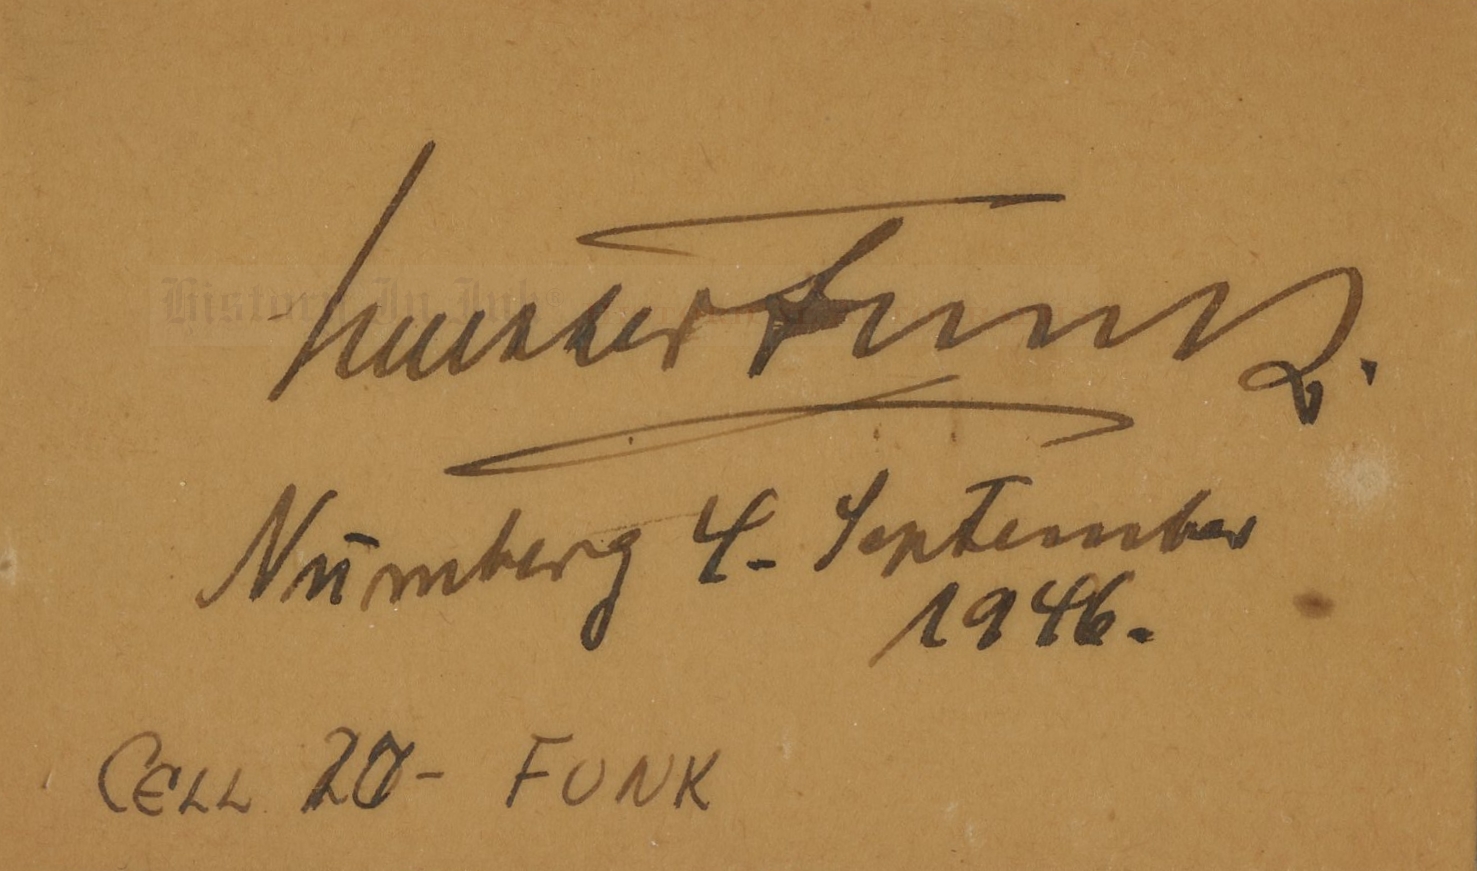 Walther Funk.
Nürnberg 4. September
1946.
CELL 20- FUNK
History In Ink